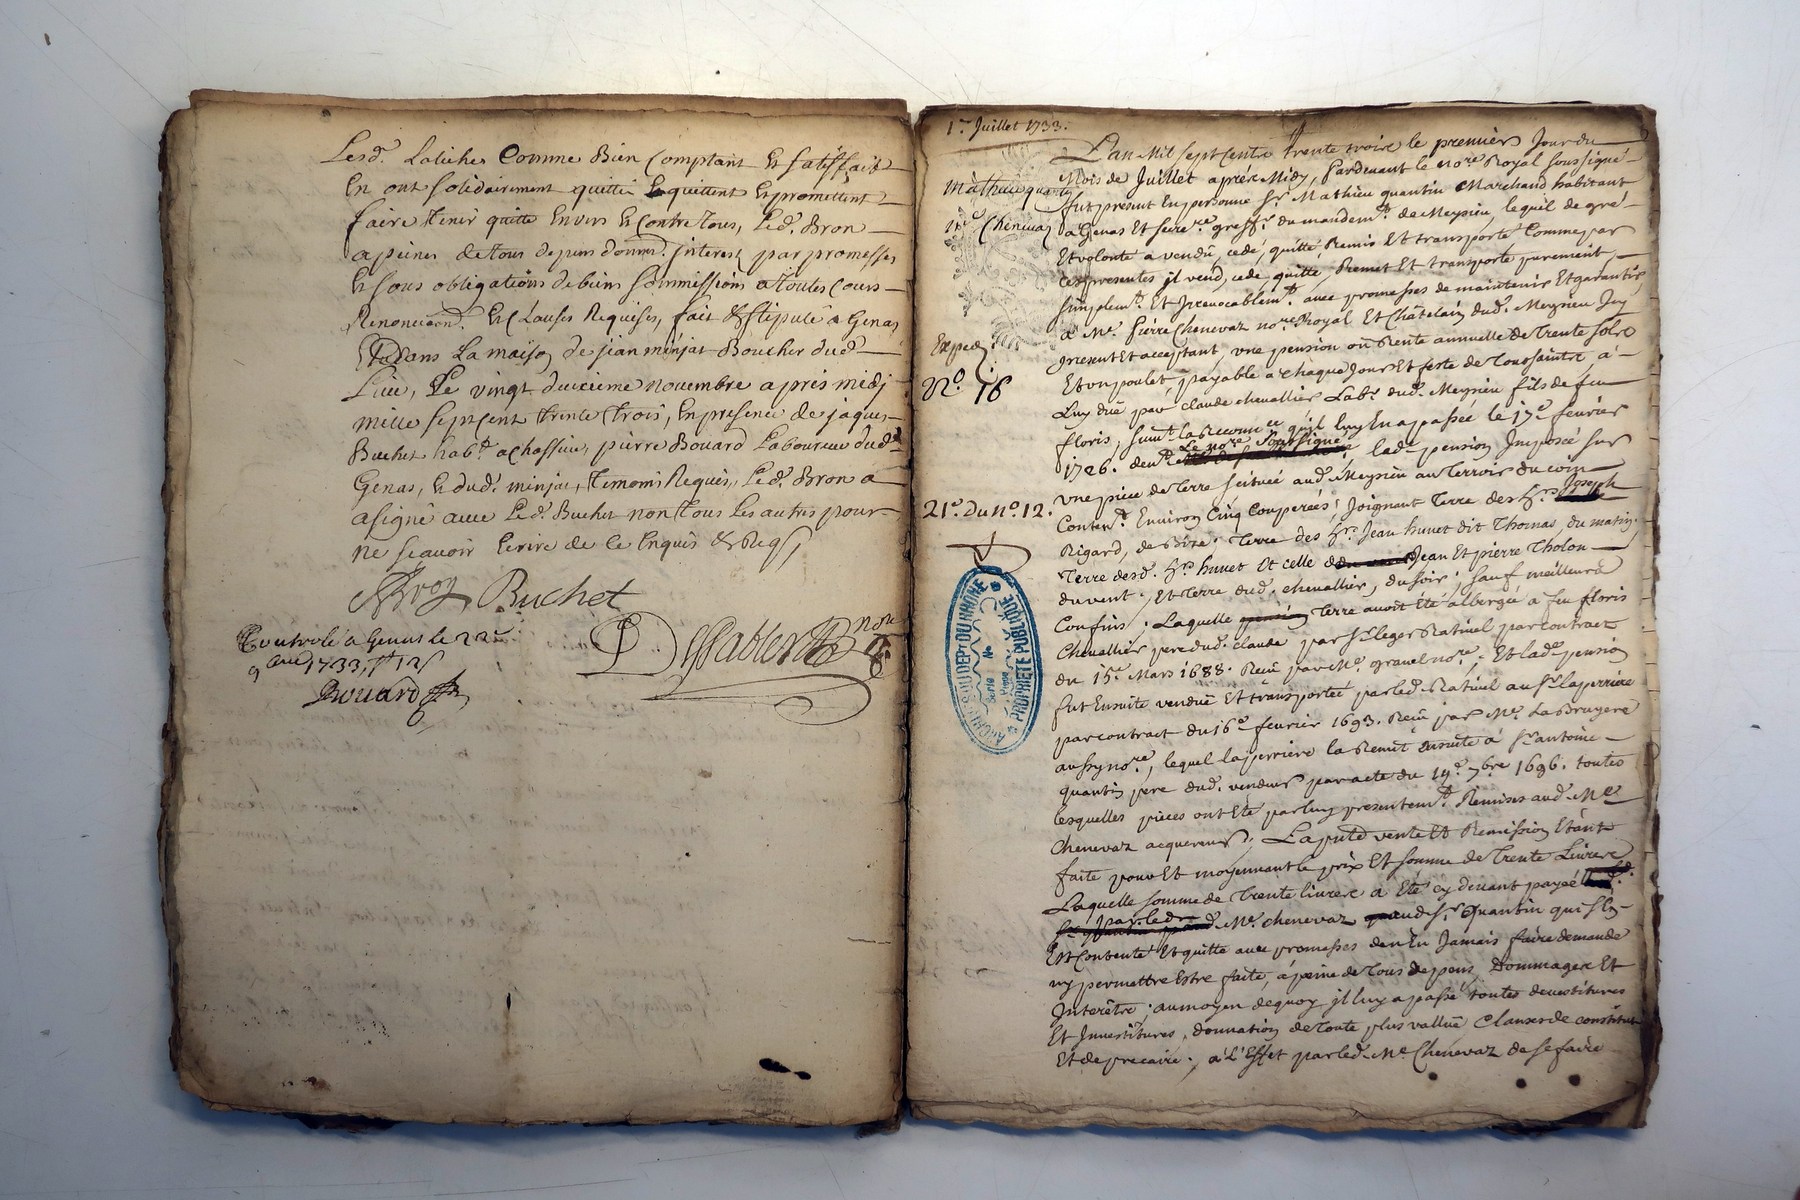 Lesd. Laliches Comme Bien Comptant Et satisfait
En ont solidairement quitté Enquittent Et promettent
faire tenir quitte Envers Et Contre tous, Led. Bron
a peines de tous depens domm. Interest par promesses
Et sous obligations de biens soummissions a Toutes Cours
Renonciaon. Et Clauses Requises, fait & stipulé a Genas
Et dans La maison de jean minjat Boucher dud.
Lieu, Le vingt deuxieme novembre apres midj
mille sept cent trente trois, En presence de jaques
Buchet hab.t a Chassieu, pierre Bouard Laboureur dud.
Genas, Et dud. minjat, temoins Requis, Led. Bron a
a signé avec Led. Buchet non tous Les autres pour
ne scavoir Ecrire de ce Enquis & Req.
Bron Buchet
Controlé a Genas le 22e
9bre 1733, 12 s
Bouard
nore
1.r Juillet 1733.
Mathieu quantin
Me Chenevaz
Exped.
No. 16
21e. Du No. 12.
ARCHIVES DU DEPT DU RHONE
Série No
PROPRIÉTÉ PUBLIQUE
L'an Mil sept Cents trente trois le premier Jour du
Mois de Juillet après Midy, Pardevant le nore Royal soussigné
fut present En personne Sr. Mathieu quantin Marchand habitant
a Genas Et secre. greff.r du mandem.t de Meysieu, lequel de gré
Et volonte a vendû, cedé, quitté, Remis Et transporté Comme par
ces presentes il vend, cede, quitte, Remet Et transporte purement,
simplem.t Et Irrevocablem.t avec promesses de maintenir Et garantir
a Me. Pierre Chenevaz nore Royal Et Châtelain dud. Meysieu Icy
present Et acceptant, une pension ou Rente annuelle de trente sols
Et un poulet payable a chaque Jour Et feste de Toussaints a
Luy duë par claude chevallier Lab.r dud. Meysieu fils de feu
floris, suiv.t la Reconn.ce qu'il luy En a passée le 17e fevrier
1726. dev.t Le nore. soussigné lad. pension Imposée sur
une piece de Terre scituée aud. Meysieu au Terroir du coin
Conten.t Environ Cinq Couperées; Joignant Terre des hrs. Joseph
Rigard, de Bize; Terre des hrs. Jean huvet dit Thomas, du matin;
Terre desd. hrs. huvet Et celle de Jean Et pierre Tholon
du vent; Et Terre dud. chevallier, du soir; sauf meilleurs
Confins; Laquelle Terre avoit été albergée a feu floris
Chevallier pere dud. claude par Sr. leger Ratinel par contract
du 15e. Mars 1688. Reçû par Me. gravel nore; Et lade. pension
fut Ensuite venduë Et transportée par led. Ratinel au Sr. laperriere
par contract du 16e fevrier 1693. Reçû par Me. LaBruyere
aussy nore, lequel laperriere la Remit Ensuite a Sr. antoine
quantin pere dud. vendeur par acte du 19e. 7bre 1696. toutes
lesquelles pieces ont été par luy presentem.t Remises aud. Me
Chenevaz acquereur; La pnte vente Et Remission Etant
faite pour Et moyennant le prix Et somme de Trente Livres
Laquelle somme de Trente livres a Eté cy devant payée
par led. Me. chenevaz aud. Sr. Quantin qui s'en
Est contenté Et quitte avec promesses den En Jamais faire demande
ny permettre Estre faite, a peine de Tous depens, Dommages Et
Interêtre; au moyen de quoy, il luy a passé toutes devestitures
Et Investitures, donnation de toute plus valluë Clauses de constitut
Et de precaire; a L'Effet par led. Me Chenevaz de se faire